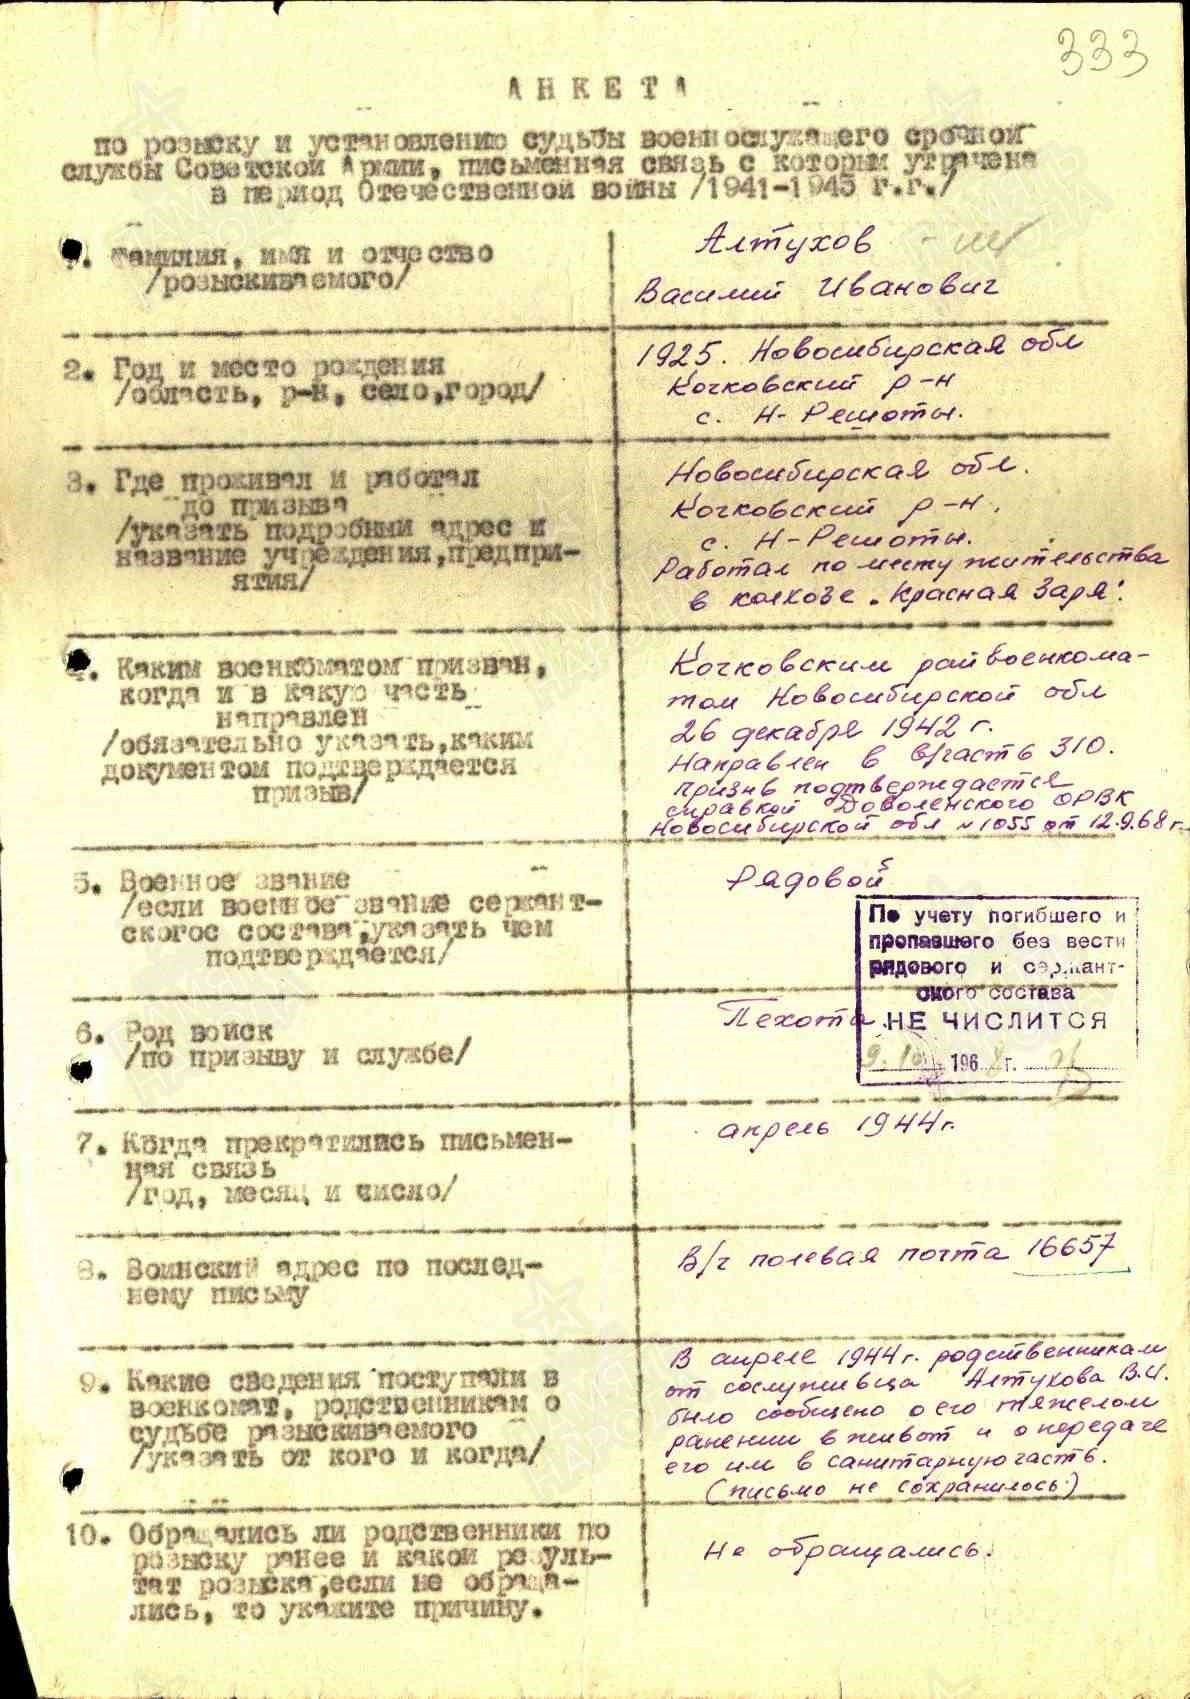 333
АНКЕТА
по розыску и установлению судьбы военнослужащего срочной
службы Советской Армии, письменная связь с которым утрачена
в период Отечественной войны /1941-1945 г.г./
1. Фамилия, имя и отчество
/розыскиваемого/
Алтухов
Василий Иванович
2. Год и место рождения
/область, р-н, село,город/
1925. Новосибирская обл
Кочковский р-н
с. Н-Решоты.
3. Где проживал и работал
до призыва
/указать подробный адрес и
название учреждения,предпри-
ятия/
Новосибирская обл.
Кочковский р-н.
с. Н-Решоты.
Работал по месту жительства
в колхозе "Красная Заря".
4. Каким военкоматом призван,
когда и в какую часть
направлен
/обязательно указать,каким
документом подтверждается
призыв/
Кочковским райвоенкома-
том Новосибирской обл
26 декабря 1942 г.
Направлен в в/часть 310.
Призыв подтверждается
справкой Доволенского ОРВК
Новосибирской обл №1055 от 12.9.68 г.
5. Военное звание
/если военное звание сержант-
скогос состава,указать чем
подтверждается/
Рядовой
По учету погибшего и
пропавшего без вести
рядового и сержант-
ского состава
НЕ ЧИСЛИТСЯ
9.10 1968 г.
6. Род войск
/по призыву и службе/
Пехота.
7. Когда прекратились письмен-
ная связь
/год, месяц и число/
апрель 1944г.
8. Воинский адрес по послед-
нему письму
В/ч полевая почта 16657
9. Какие сведения поступали в
военкомат, родственникам о
судьбе разыскиваемого
/указать от кого и когда/
В апреле 1944г. родственникам
от сослуживца Алтухова В.И.
было сообщено о его тяжелом
ранении в живот и о передаче
его им в санитарную часть.
(письмо не сохранилось)
10. Обращались ли родственники по
розыску ранее и какой резуль-
тат розыска,если не обраща-
лись, то укажите причину.
Не обращались.